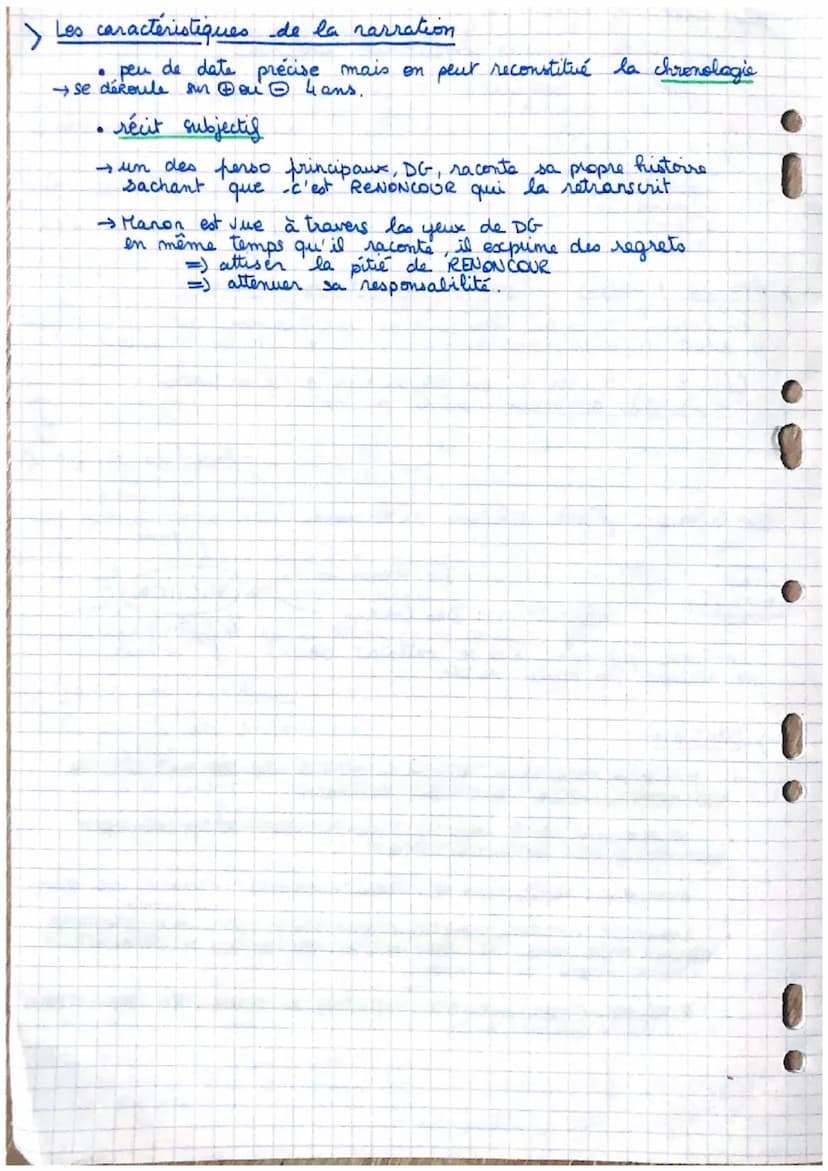 > Les caractéristiques de la narration
• peu de date précise mais on peut reconstitué la chronologie
→ se déroule sur ⊕ ou ⊖ 4 ans.
• récit subjectif
→ un des perso principaux, DG, raconte sa propre histoire
sachant que c'est RENONCOUR qui la retranscrit
→ Manon est vue à travers les yeux de DG
en même temps qu'il raconte, il exprime des regrets
=) attiser la pitié de RENONCOUR
=) attenuer sa responsabilité.